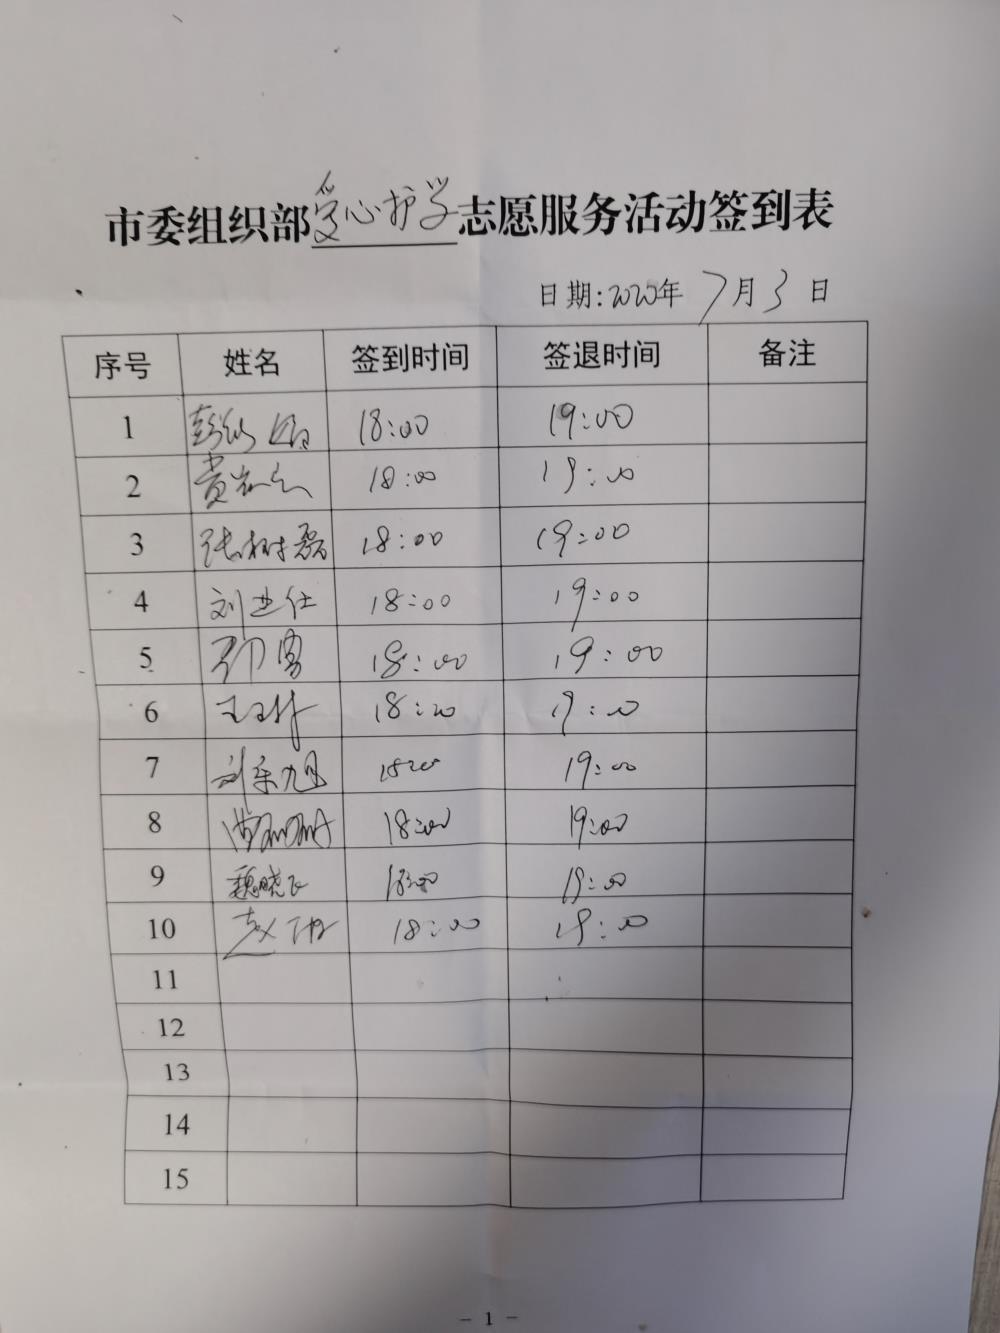 市委组织部爱心护学志愿服务活动签到表
日期:2020年7月3日
序号 姓名 签到时间 签退时间 备注
1 18:00 19:00
2 18:00 19:00
3 张树磊 18:00 19:00
4 刘世仕 18:00 19:00
5 18:00 19:00
6 18:20 19:00
7 刘乐旭 18:00 19:00
8 18:00 19:00
9 魏晓飞 18:00 19:00
10 赵 18:00 19:00
11
12
13
14
15
- 1 -